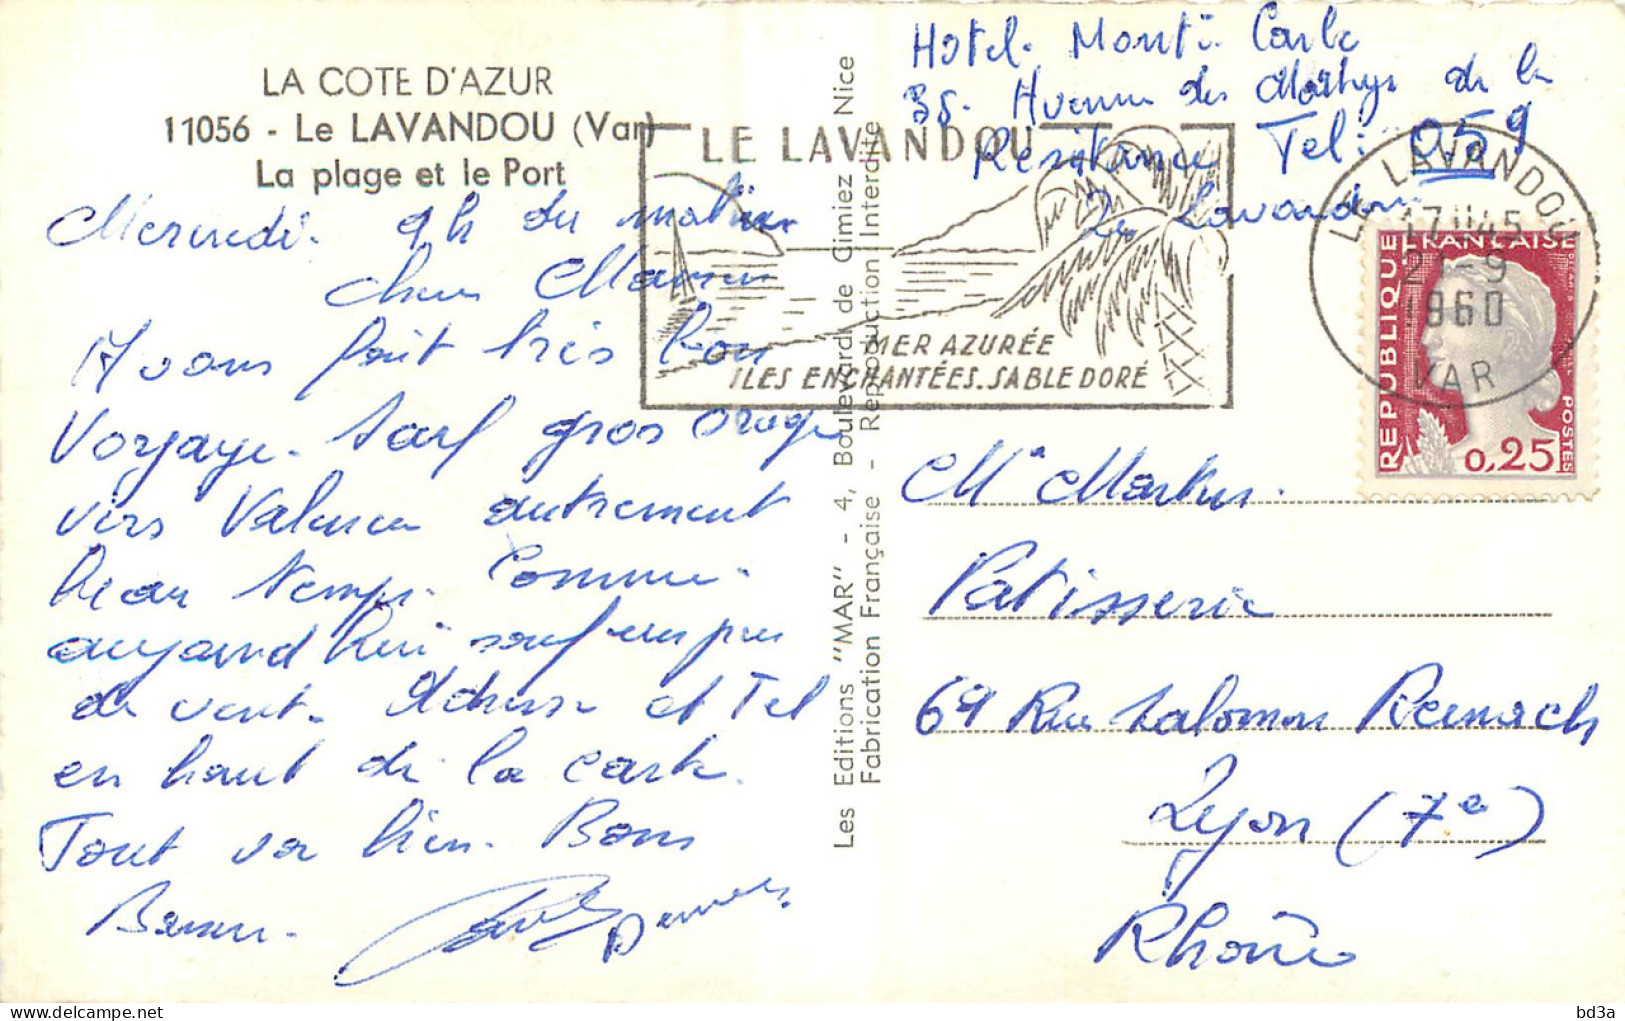 LA COTE D'AZUR
11056 - Le LAVANDOU (Var)
La plage et le Port
Mercredi. 9h du matin
Chère Maman
Avons fait très bon
Voyage. Sauf gros orage
vers Valence autrement
beau temps. Comme
aujourd'hui sauf un peu
de vent. Adresse et Tel
en haut de la carte.
Tout va bien. Bons
Baisers.
Les Editions "MAR" - 4, Boulevard de Cimiez Nice
Fabrication Française - Reproduction Interdite
Hôtel. Monte. Carlo
38. Avenue des Martyrs de la
Resistance Tel: 059
Le Lavandou
LE LAVANDOU
MER AZURÉE
ILES ENCHANTÉES. SABLE DORÉ
LE LAVANDOU
17H45
21-9
1960
VAR
REPUBLIQUE FRANÇAISE
POSTES
0,25
Patisserie
69 Rue Salomon Reinach
Lyon (7e)
Rhône